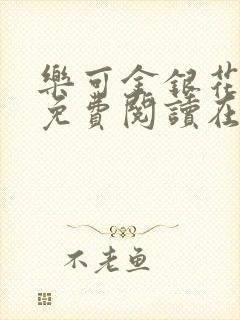 樂可金銀花
免費閱讀在
不老魚